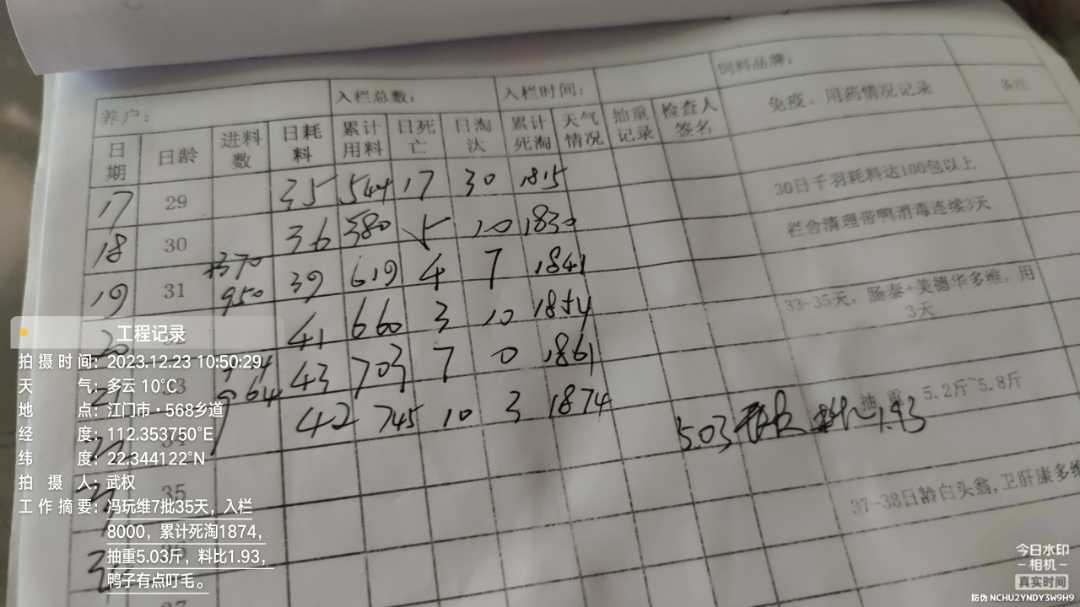 养户： 入栏总数： 入栏时间： 饲料品牌：
日期 日龄 进料数 日耗料 累计用料 日死亡 日淘汰 累计死淘 天气情况 抽重记录 检查人签名 免疫、用药情况记录 备注
17 29 35 544 17 30 1815
30日千羽耗料达100包以上
18 30 36 580 5 10 1830
栏舍清理带鸭消毒连续3天
370
19 31 950 39 619 4 7 1841
33-35天，肠泰+美德华多维，用3天
20 41 660 3 10 1854
33 964 43 703 7 0 1861
42 745 10 3 1874
抽重 5.2斤~5.8斤
5.03 1.93
35
37-38日龄白头翁,卫肝康多维
37
工程记录
拍摄时间：2023.12.23 10:50:29
天气：多云 10°C
地点：江门市·568乡道
经度：112.353750°E
纬度：22.344122°N
拍摄人：武权
工作摘要：冯玩维7批35天，入栏
8000，累计死淘1874，
抽重5.03斤，料比1.93，
鸭子有点叮毛。
今日水印
-相机-
真实时间
防伪 NCHU2YNDY3W9H9